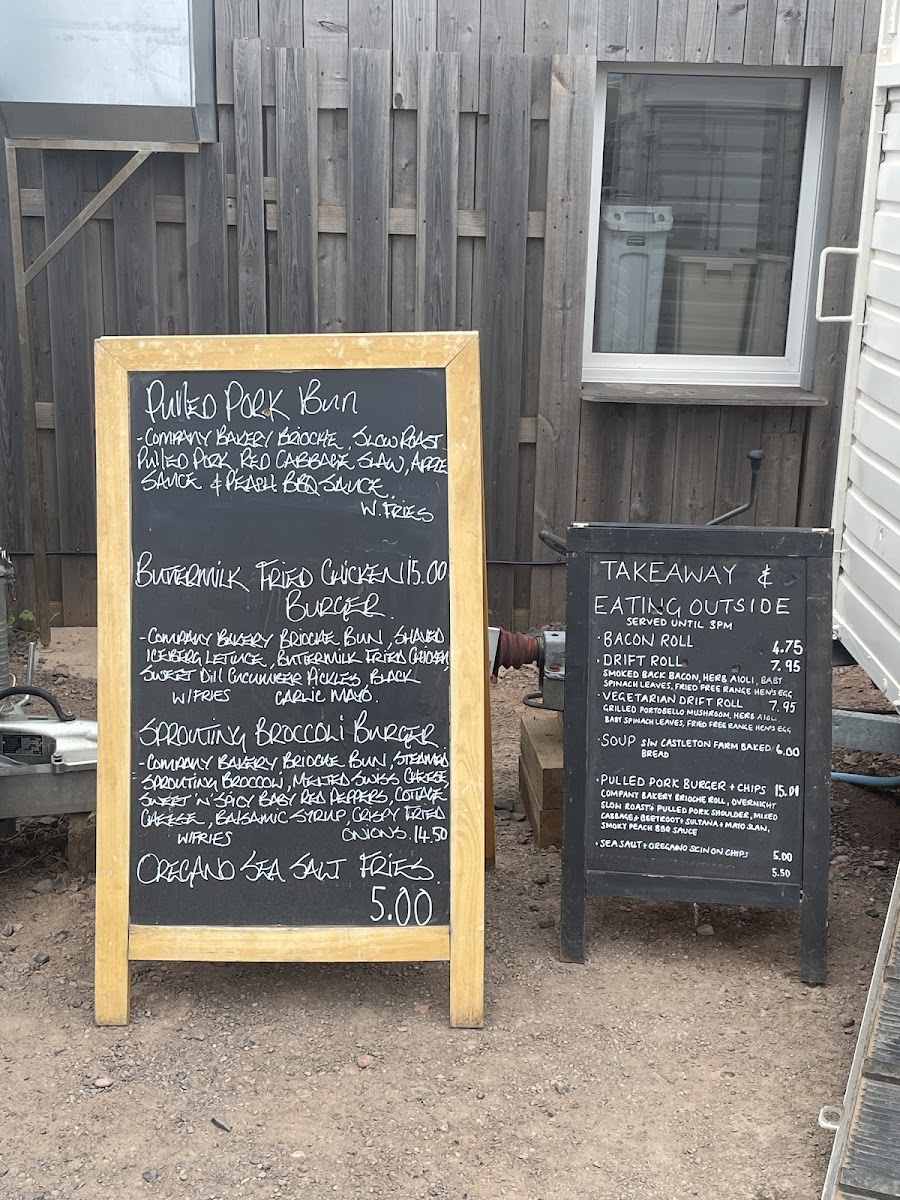 PULLED PORK BUN
- COMPANY BAKERY BRIOCHE, SLOW ROAST
PULLED PORK, RED CABBAGE SLAW, APPLE
SAUCE & PEACH BBQ SAUCE.
W. FRIES
BUTTERMILK FRIED CHICKEN 15.00
BURGER.
- COMPANY BAKERY BRIOCHE BUN, SHAVED
ICEBERG LETTUCE, BUTTERMILK FRIED CHICKEN,
SWEET DILL CUCUMBER PICKLES, BLACK
W/FRIES GARLIC MAYO.
SPROUTING BROCCOLI BURGER
- COMPANY BAKERY BRIOCHE BUN, STEAMED
SPROUTING BROCCOLI, MELTED SWISS CHEESE,
SWEET 'N' SPICY BABY RED PEPPERS, COTTAGE
CHEESE, BALSAMIC SYRUP, CRISPY FRIED
W/FRIES ONIONS. 14.50
OREGANO SEA SALT FRIES.
5.00
TAKEAWAY &
EATING OUTSIDE
SERVED UNTIL 3PM
· BACON ROLL 4.75
· DRIFT ROLL 7.95
SMOKED BACK BACON, HERB AIOLI, BABY
SPINACH LEAVES, FRIED FREE RANGE HEN'S EGG
· VEGETARIAN DRIFT ROLL 7.95
GRILLED PORTOBELLO MUSHROOM, HERB AIOLI,
BABY SPINACH LEAVES, FRIED FREE RANGE HEN'S EGG
· SOUP S/W CASTLETON FARM BAKED 6.00
BREAD
· PULLED PORK BURGER + CHIPS 15.00
COMPANY BAKERY BRIOCHE ROLL, OVERNIGHT
SLOW ROAST PULLED PORK SHOULDER, MIXED
CABBAGE + BEETROOT + SULTANA + MAYO SLAW,
SMOKY PEACH BBQ SAUCE
· SEA SALT + OREGANO SKIN ON CHIPS 5.00
5.50